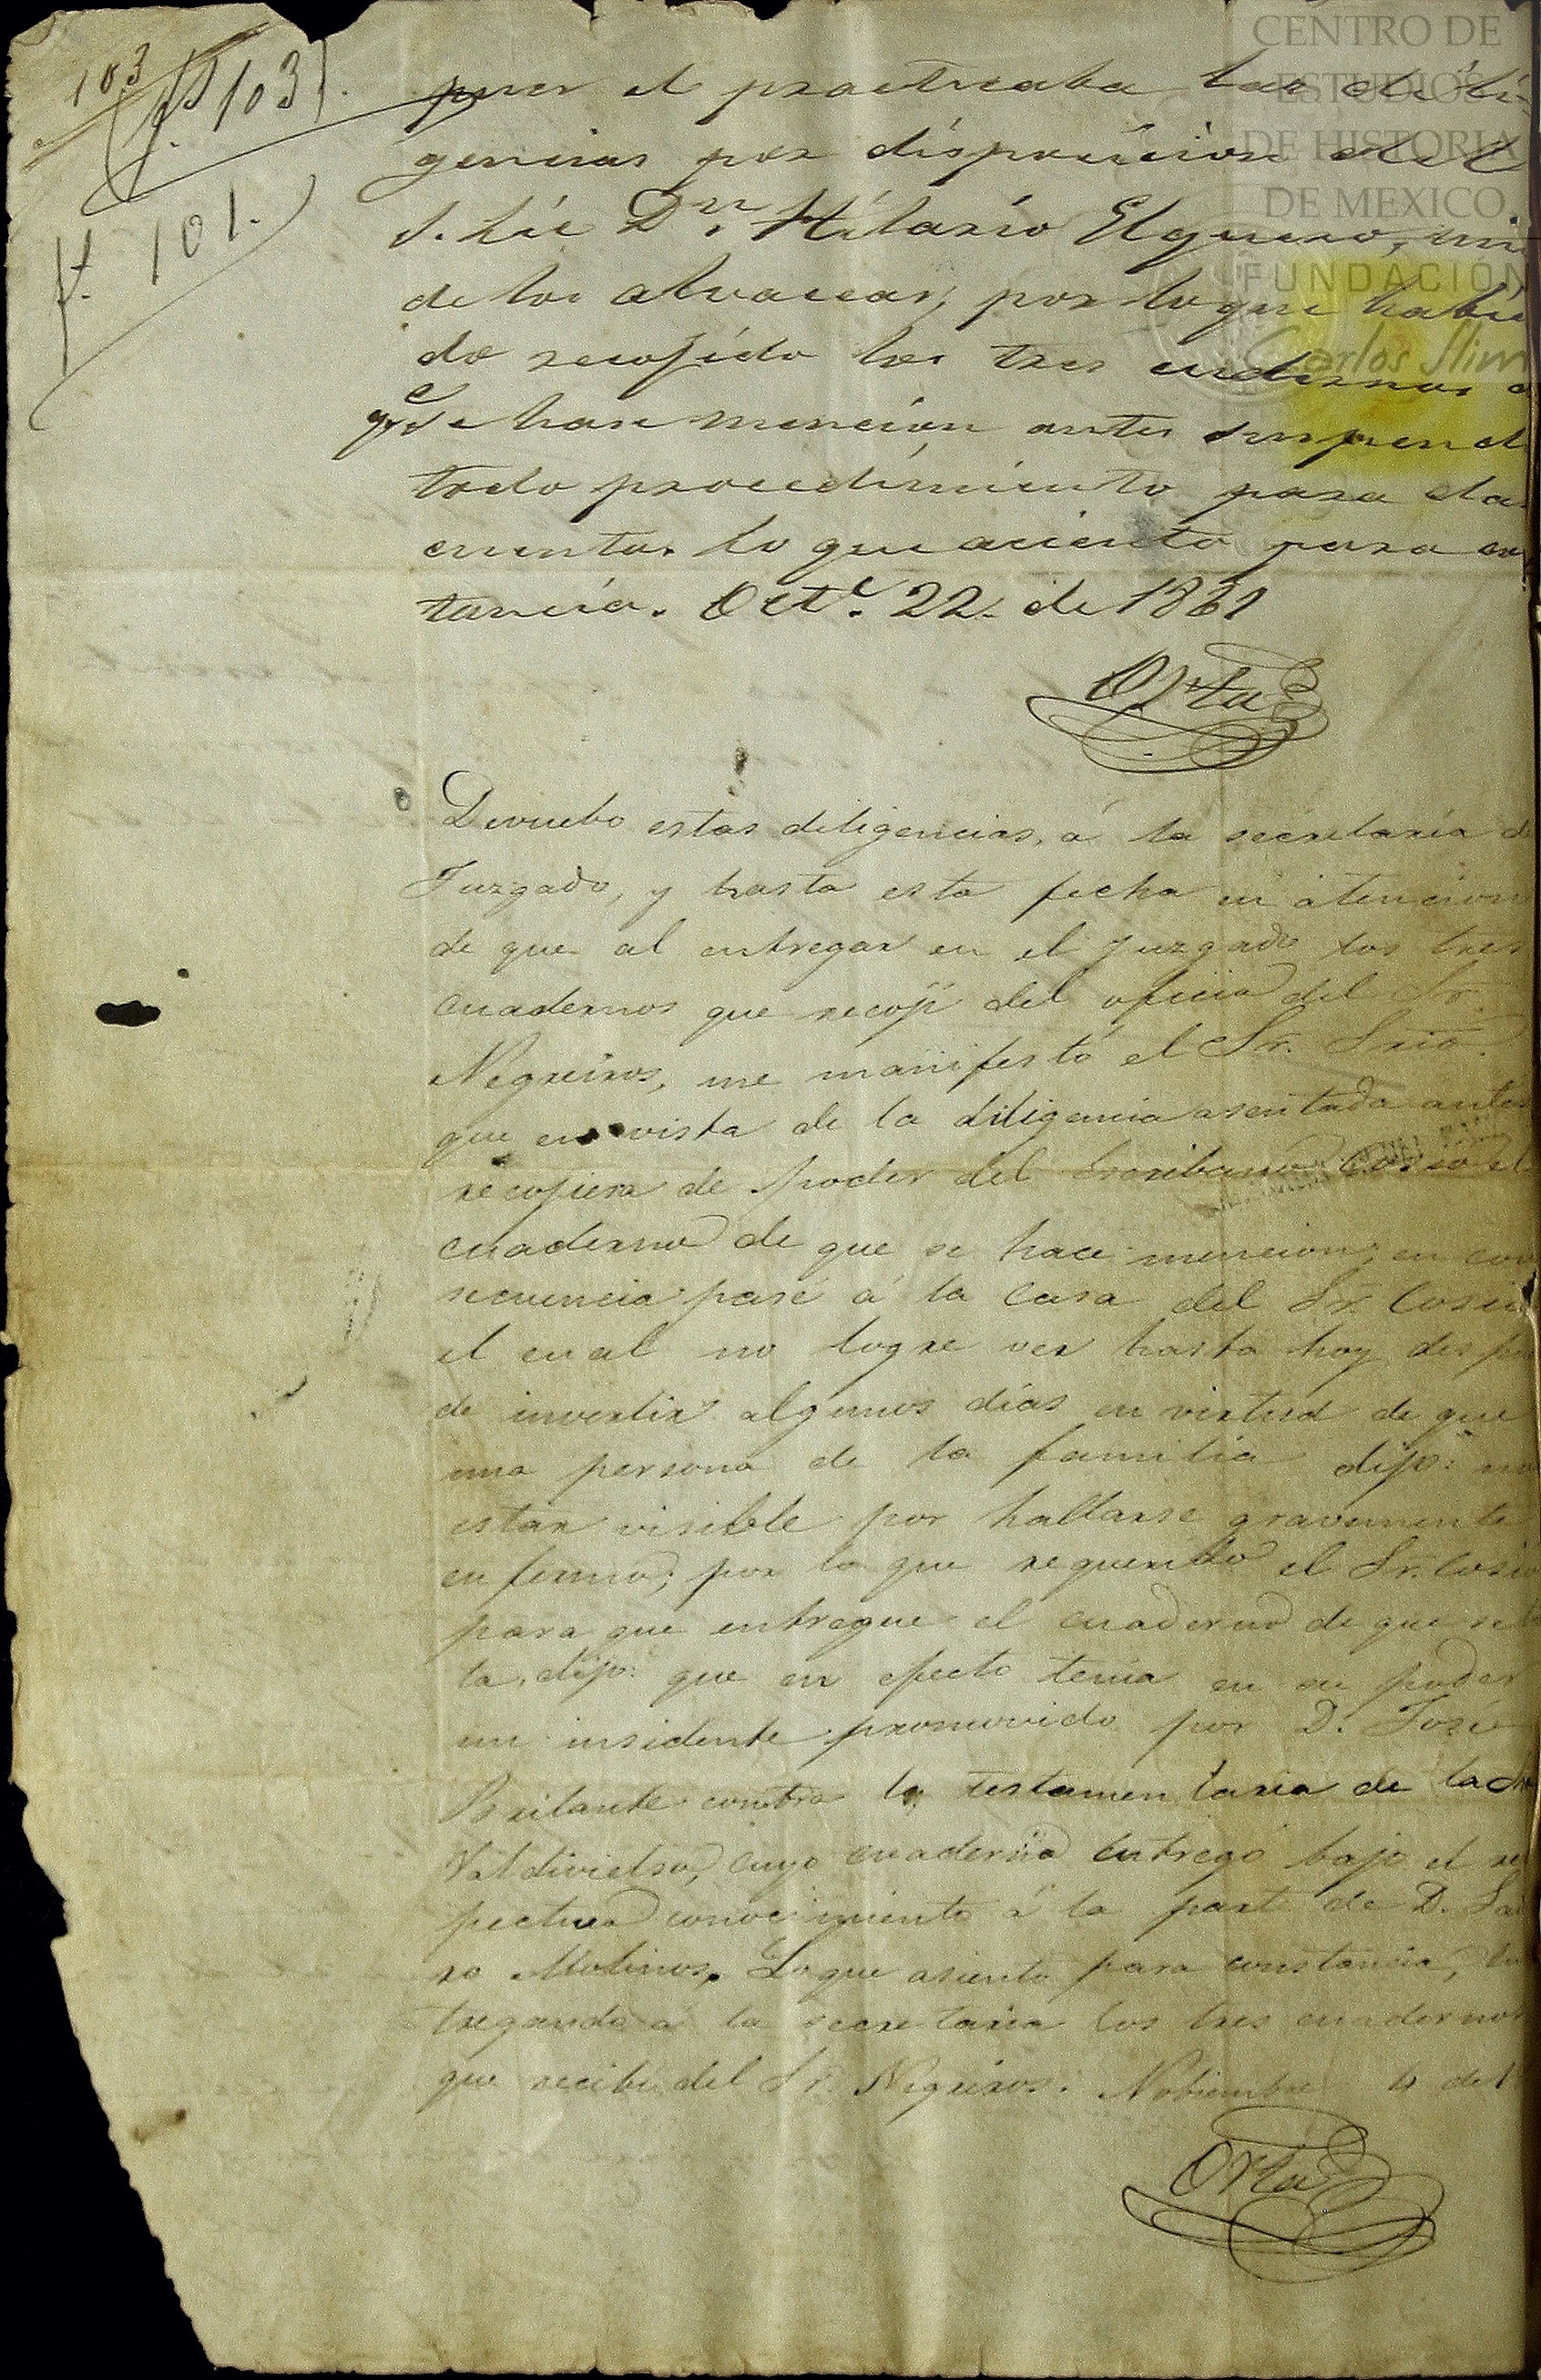 103
f 103
f. 101.
CENTRO DE
ESTUDIOS
DE HISTORIA
DE MEXICO
FUNDACIÓN
Carlos Slim
pues el practicaba las dili
gencias por disposicion del
S. Lic Dn. Hilario Elguero, un
de los alvaceas, por lo que habié
do recojido los tres cuadernos a
qe se hase mencion antes suspend
todo procedimiento para da
cuenta. lo que aciento para con
tancia. Octe. 22. de 1861
Orta
Devuelvo estas diligencias, á la secretaria d
Juzgado, y hasta esta fecha en atencion
de que al entregar en el juzgado los tres
cuadernos que recojí del oficio del Sr.
Negreiros, me manifestó el Sr. Srio.
que en vista de la diligencia asentada antes
recojiera de poder del Escribano Cosio el
cuaderno de que se hace mencion; en con
secuencia pasé á la casa del Sr. Cosio
el cual no logre ver hasta hoy despu
de invertir algunos dias en virtud de que
una persona de la familia dijo: no
estar visible por hallarse gravemente
enfermo; por lo que requerido el Sr. Cosio
para que entregue el cuaderno de que se t
ta, dijo: que en efecto tenia en su poder
un insidente promovido por D. José
Brilante contra la testamentaria de la
Valdivielso, cuyo cuaderno entregó bajo el res
pectivo conocimiento á la parte de D.
ro Molinos. Lo que asiento para constancia, en
tregando á la secretaria los tres cuadernos
que recibi del Sr. Negreiros. Nobiembre 4 de 1
Orta